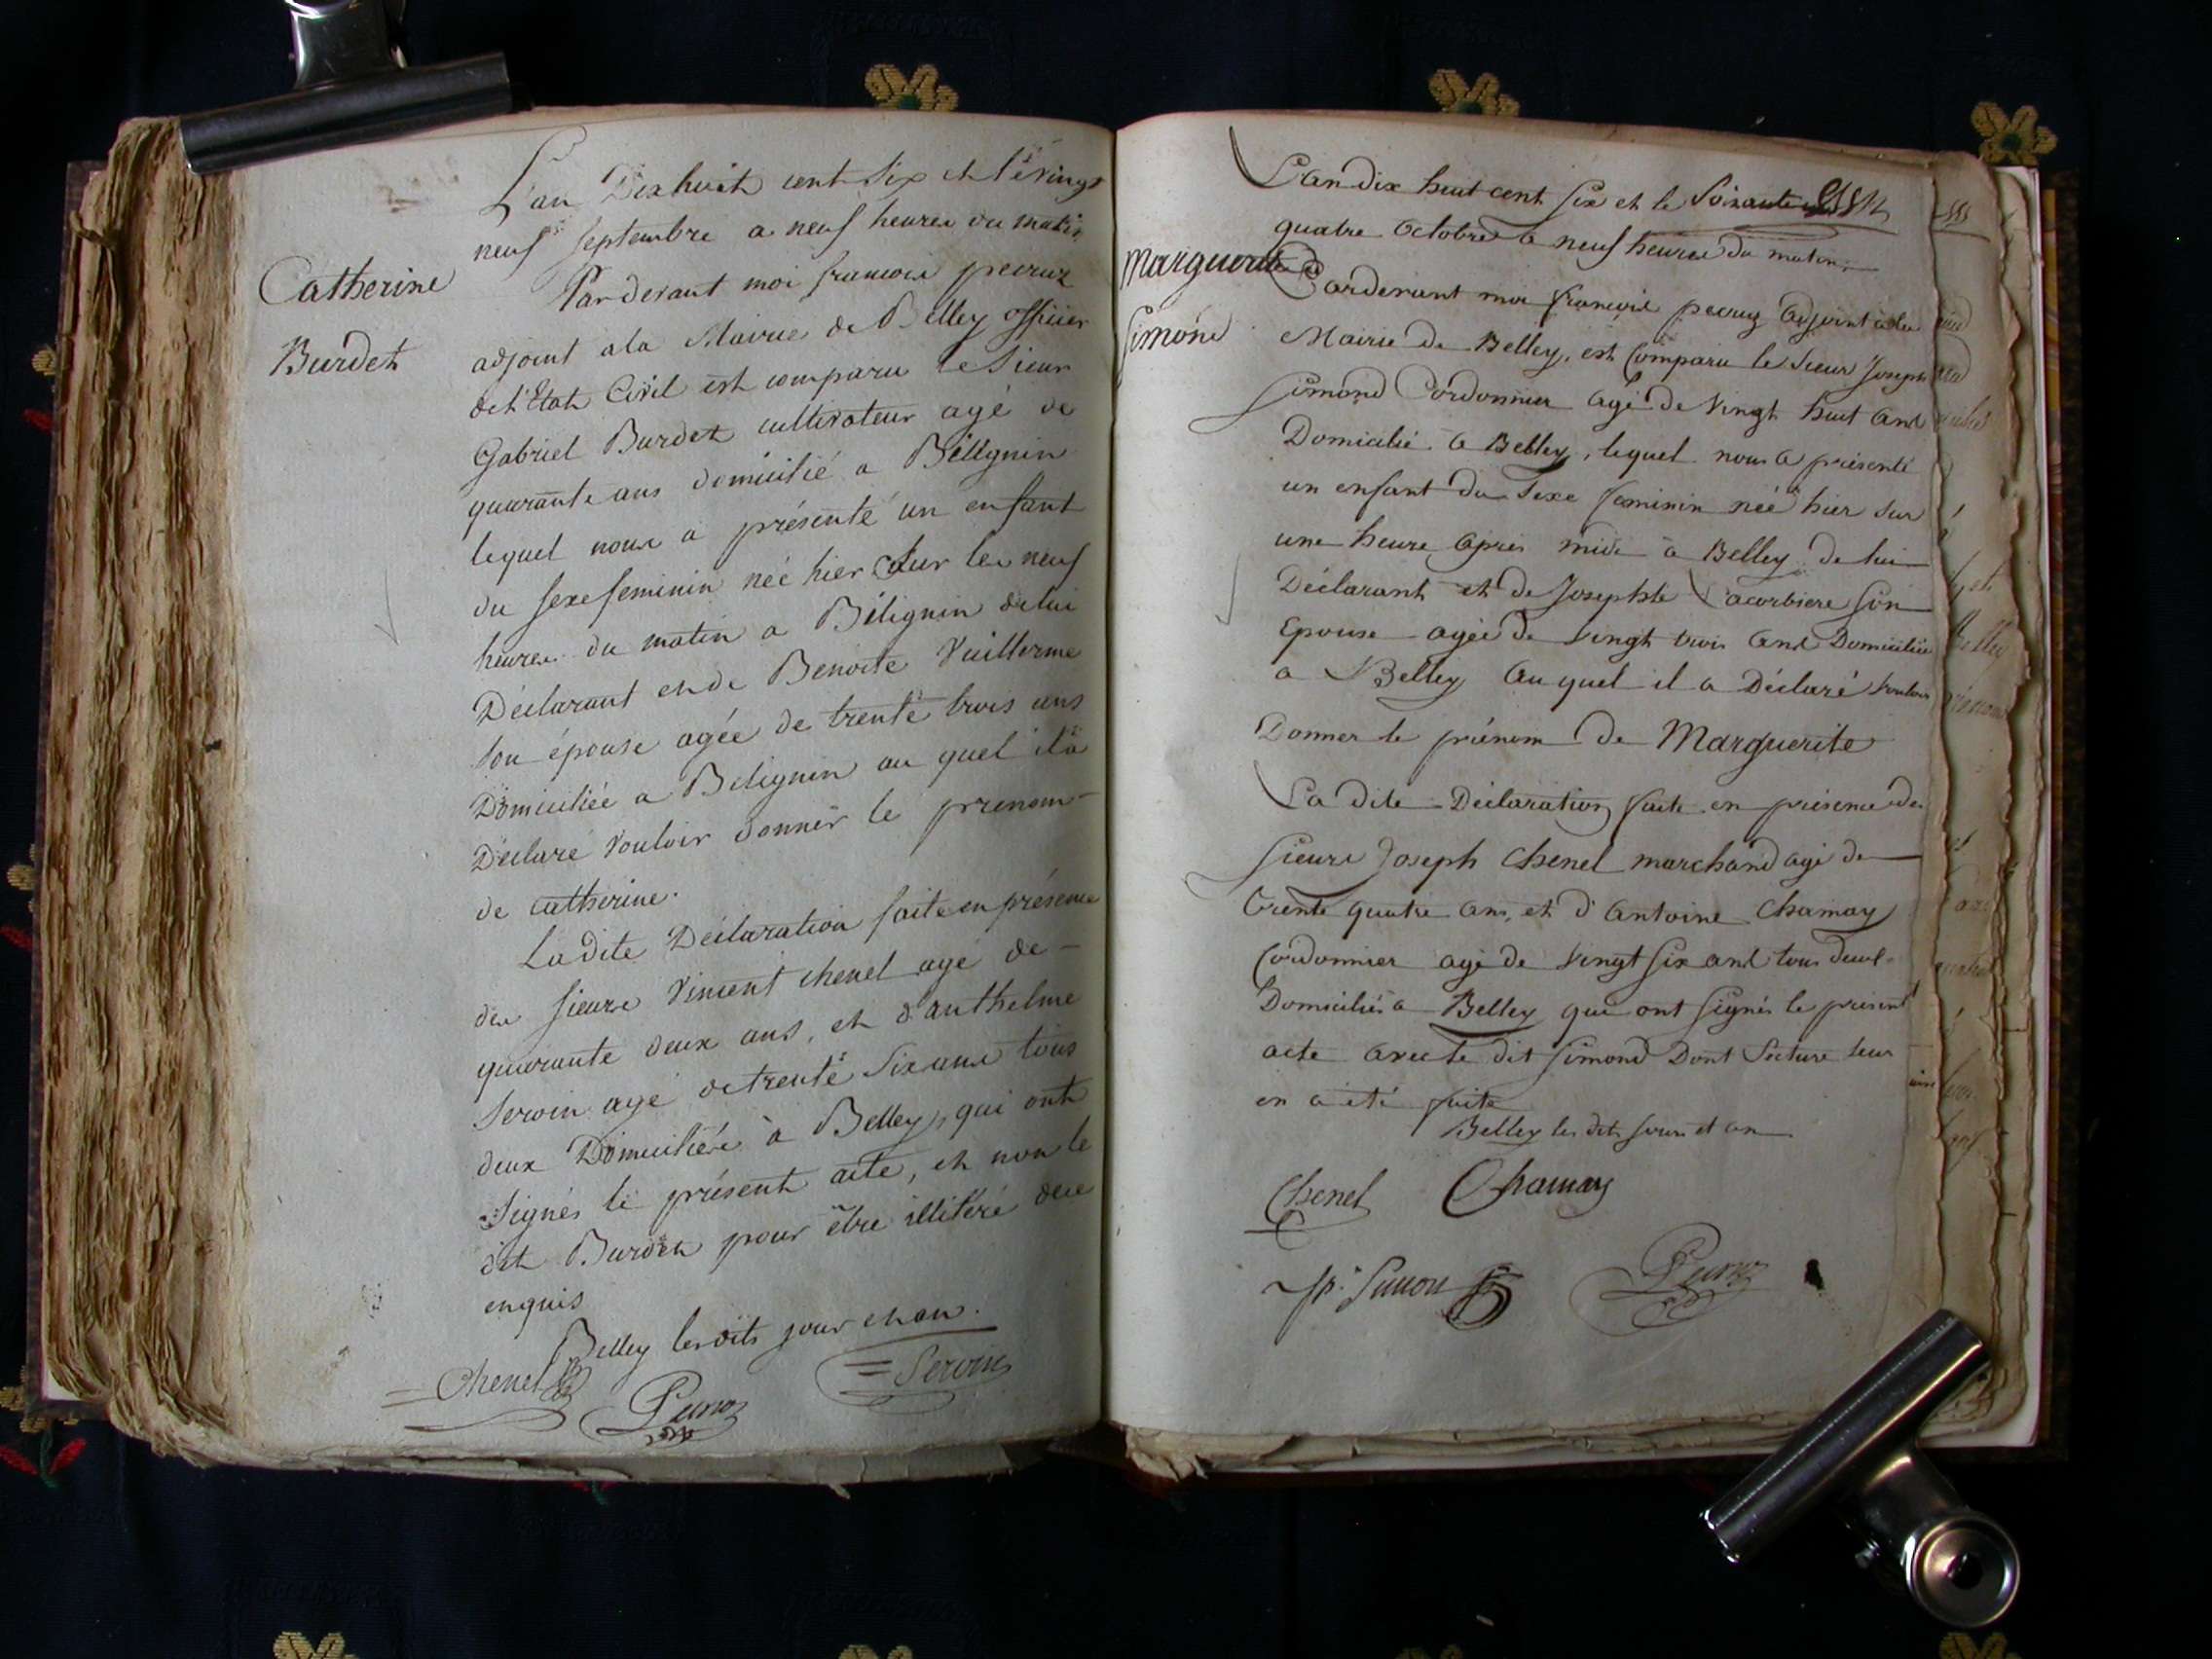 L'an Dixhuit cent Six et le vingt
neuf Septembre a neuf heures du matin
Catherine
Burdet
Pardevant moi francois pecruz
adjoint a la Mairie de Belley officier
de l'Etat Civil est comparu le Sieur
Gabriel Burdet cultivateur agé de
quarante ans domicilié a Bélignin
lequel nous a présenté un enfant
du sexe feminin neé hier Sur les neuf
heures du matin a Bélignin de lui
Déclarant et de Benoite Vuillerme
Son épouse agée de trente trois ans
Domiciliée a Bélignin au quel il a
Déclaré vouloir donner le prenom
de catherine.
La dite Déclaration faite en présence
des Sieurs Vincent chenel agé de
quarante deux ans, et d'anthelme
Servin agé de trente Six ans tous
deux Domiciliés à Belley, qui ont
Signés le présent acte, et non le
dit Burdet pour être illitéré de ce
enquis
Belley les dits jour et an.
Chenel
Servin
Pecruz
L'an dix huit cent Six et le
quatre octobre a neuf heures du matin
Marguerite
Simond
Pardevant moi francois pecruz adjoint a la
Mairie de Belley, est Comparu le Sieur Joseph
Simond Cordonnier agé de vingt huit ans
Domicilié a Belley, lequel nous a présenté
un enfant du Sexe feminin neé hier sur
une heure après midi a Belley de lui
Déclarant et de Josephte Lacorbiere Son
Epouse agée de vingt trois ans Domiciliée
a Belley au quel il a Déclaré vouloir
Donner le prénom de Marguerite
La dite Déclaration faite en présence des
Sieurs Joseph Chenel marchand agé de
trente quatre ans, et d'Antoine Chamay
Cordonnier agé de vingt six ans tous deux
Domiciliés a Belley qui ont Signés le présent
acte avec le dit Simond Dont lecture leur
en a été faite
Belley les dits jour et an
Chenel Chamay
Simon Pecruz